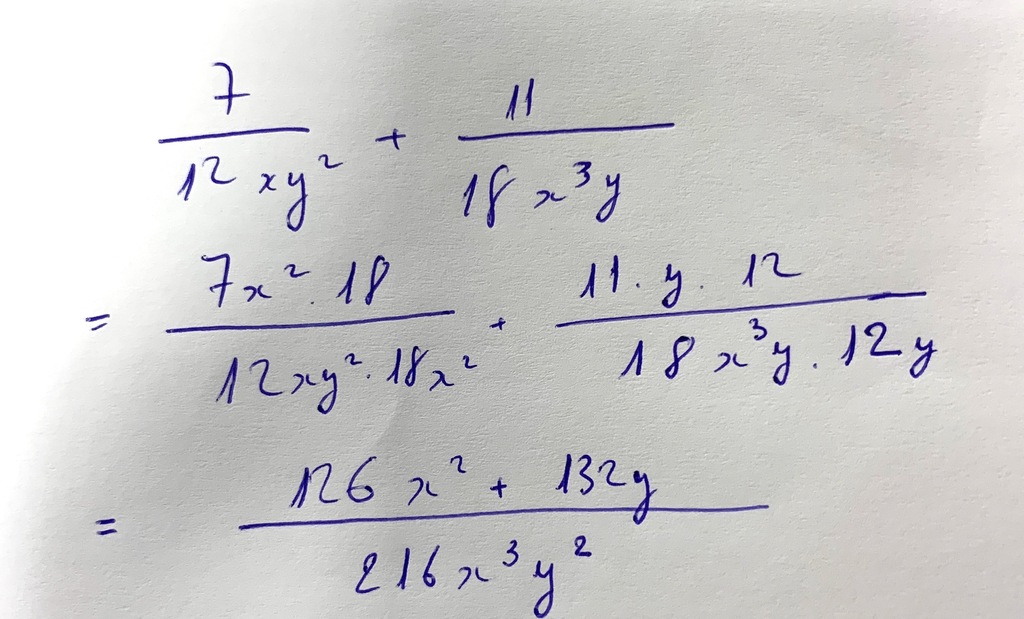 7/(12xy²) + 11/(18x³y)
= (7x² · 18)/(12xy² · 18x²) + (11 · y · 12)/(18x³y · 12y)
= (126x² + 132y)/(216x³y²)